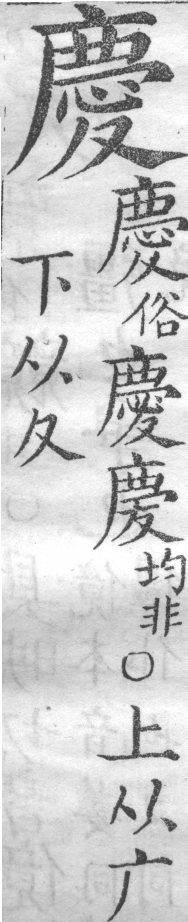 慶
慶俗慶慶均非○上从亠
下从夂